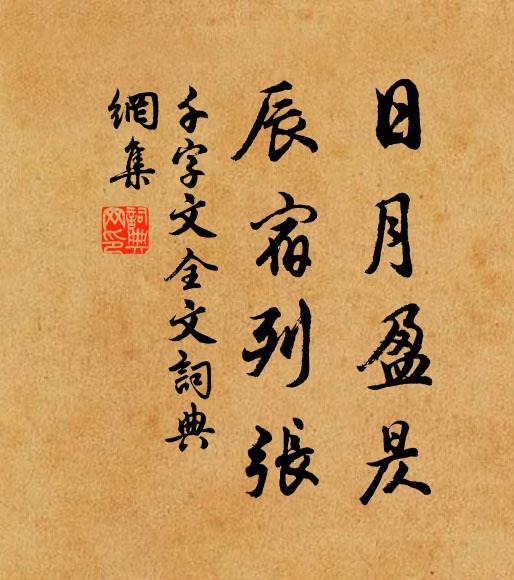 日月盈昃
辰宿列張
千字文全文詞典
網集
詞典
网印